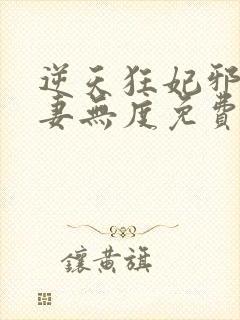 逆天狂妃邪
妻無度免費
鑲黃旗